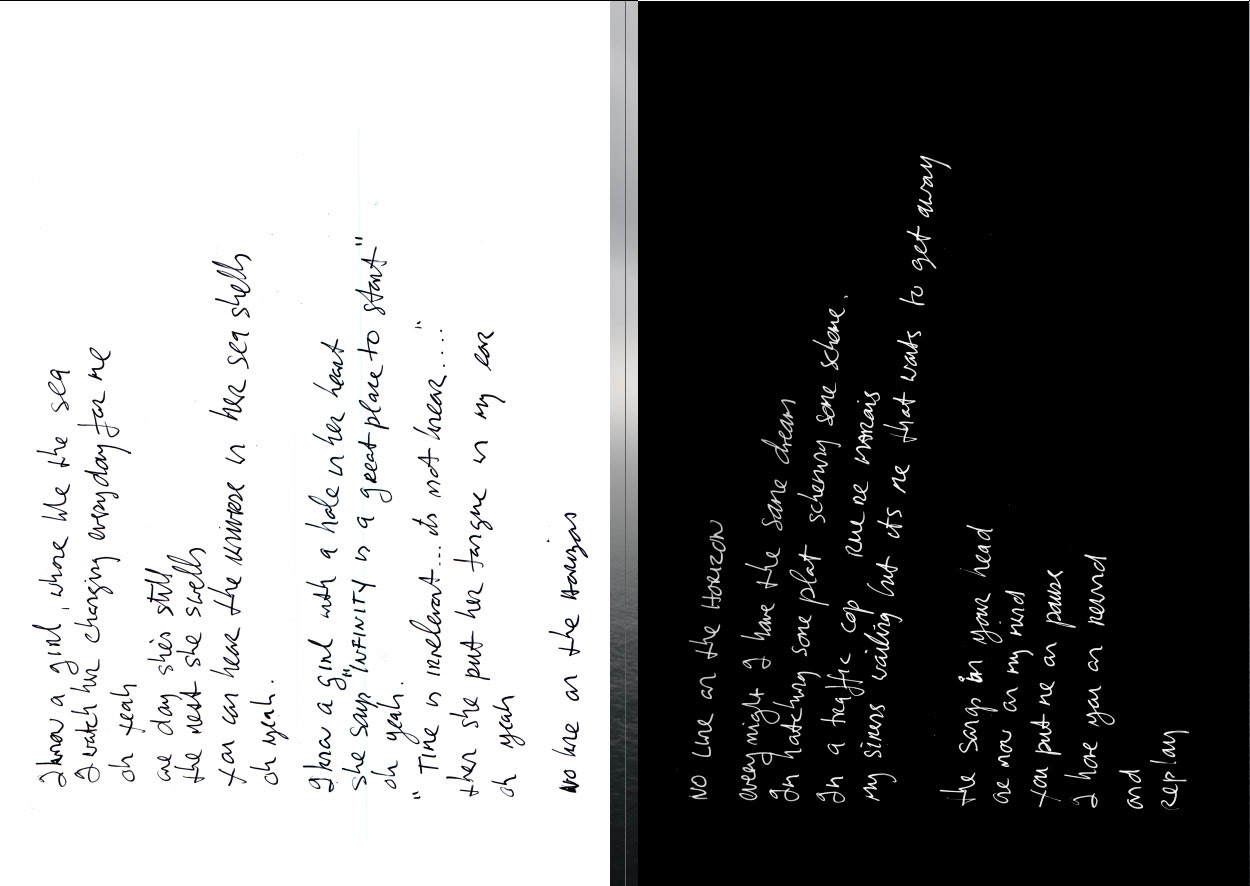 I know a girl, whose like the sea
I watch her changing everyday for me
oh yeah
one day she's still
the next she swells
You can hear the universe in her sea shells
oh yeah.
I know a girl with a hole in her heart
she says "INFINITY is a great place to start"
oh yeah.
"Time is irrelevant... its not linear....."
then she put her tongue in my ear
oh yeah
NO line on the HORIZON
NO LINE on the HORIZON
every night I have the same dream
I'm hatching some plot scheming some scheme.
I'm a traffic cop rue de marais
my sirens wailing but its me that wants to get away
the songs in your head
are now on my mind
You put me on pause
I have you on rewind
and
replay